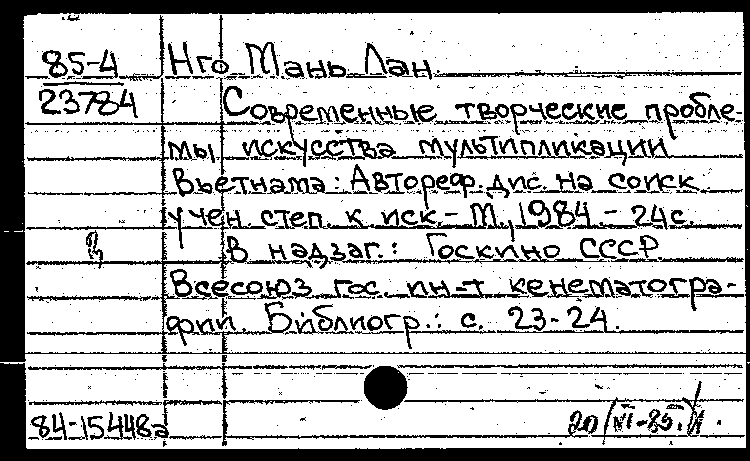 85-4 Нго Мань Лан
23784 Современные творческие пробле-
мы искусства мультипликации
Вьетнама: Автореф. дис. на соиск.
учен. степ. к. иск. - М., 1984. - 24 с.
В надзаг.: Госкино СССР
Всесоюз. гос. ин-т кенематогра-
фии. Библиогр.: с. 23-24.
84-15448а 20/VI-85.